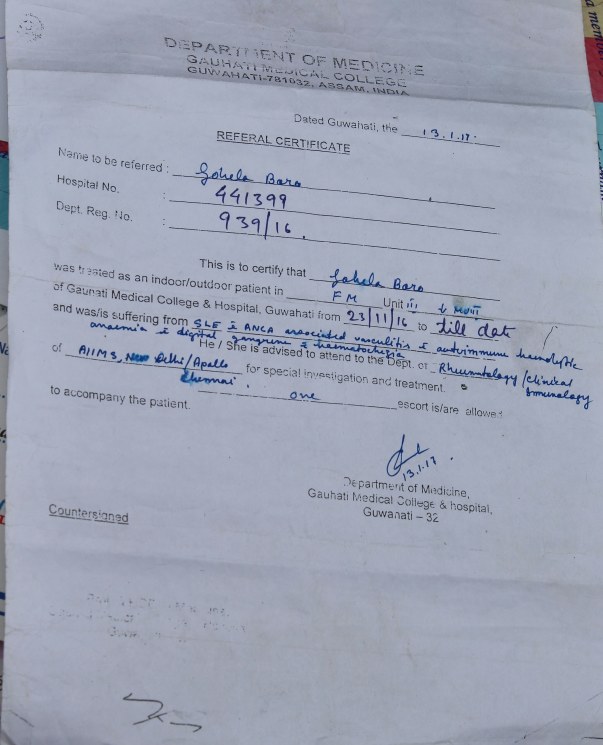 DEPARTMENT OF MEDICINE
GAUHATI MEDICAL COLLEGE
GUWAHATI-781032, ASSAM, INDIA
Dated Guwahati, the 13.1.17.
REFERAL CERTIFICATE
Name to be referred : Gohela Baro
Hospital No. : 441399
Dept. Reg. No. : 939/16.
This is to certify that Gohela Baro
was treated as an indoor/outdoor patient in FM Unit III
of Gauhati Medical College & Hospital, Guwahati from 23/11/16 to till date
and was/is suffering from SLE c ANCA associated vasculitis c autoimmune haemolytic
anaemia c digital gangrene c haematochezia
He / She is advised to attend to the Dept. of Rheumatology/clinical
Immunology
of AIIMS, New Delhi/Apollo for special investigation and treatment.
Chennai.
one escort is/are allowed
to accompany the patient.
13.1.17.
Department of Medicine,
Gauhati Medical College & hospital,
Guwahati – 32
Countersigned